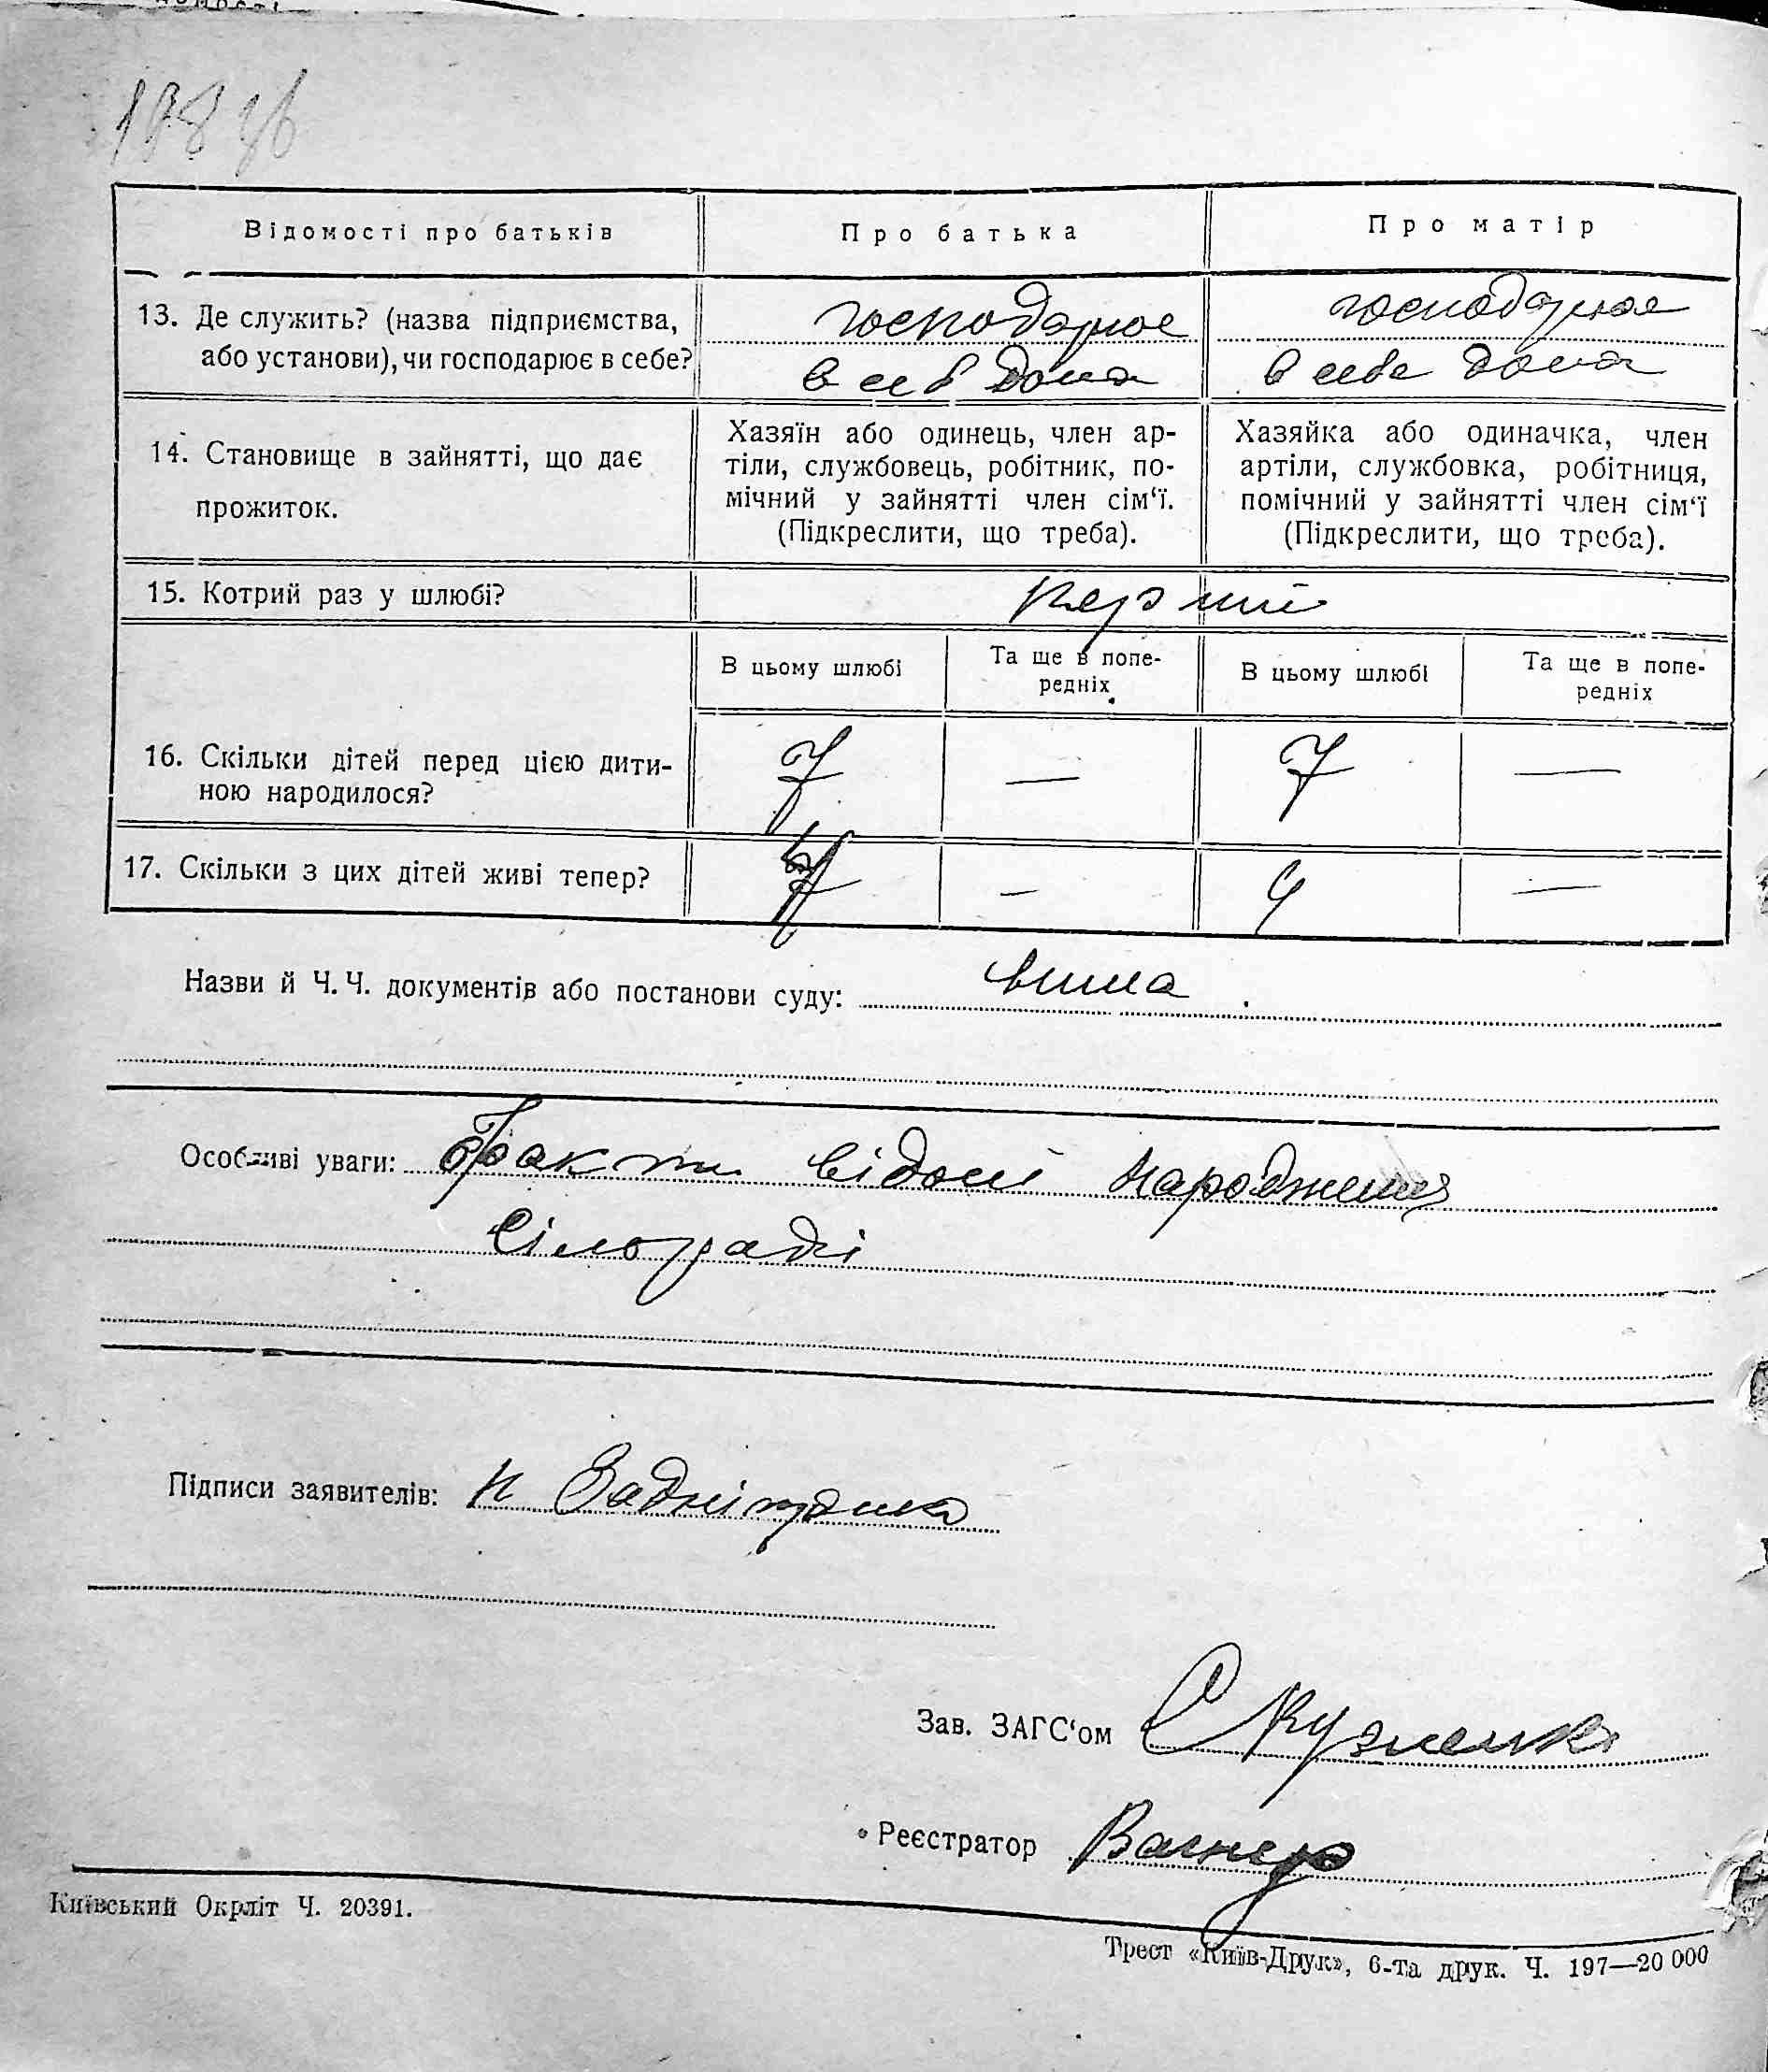 198 зв
Відомості про батьків
Про батька
Про матір
13. Де служить? (назва підприємства,
або установи), чи господарює в себе?
господарює
в себ дома
господарює
в себе дома
14. Становище в зайнятті, що дає
прожиток.
Хазяїн або одинець, член ар-
тіли, службовець, робітник, по-
мічний у зайнятті член сім‘ї.
(Підкреслити, що треба).
Хазяйка або одиначка, член
артіли, службовка, робітниця,
помічний у зайнятті член сім‘ї
(Підкреслити, що треба).
15. Котрий раз у шлюбі?
перший
В цьому шлюбі
Та ще в попе-
редніх
В цьому шлюбі
Та ще в попе-
редніх
16. Скільки дітей перед цією дити-
ною народилося?
7 — 7 —
17. Скільки з цих дітей живі тепер?
4 — 4 —
Назви й Ч. Ч. документів або постанови суду:
Особливі уваги: Факти відомі народження
сілораді
Підписи заявителів: Н Задніпряна
Зав. ЗАГС‘ом С Кузменко
Реєстратор Вагнер
Київський Окрліт Ч. 20391.
Трест «Київ-Друк», 6-та друк. Ч. 197—20 000